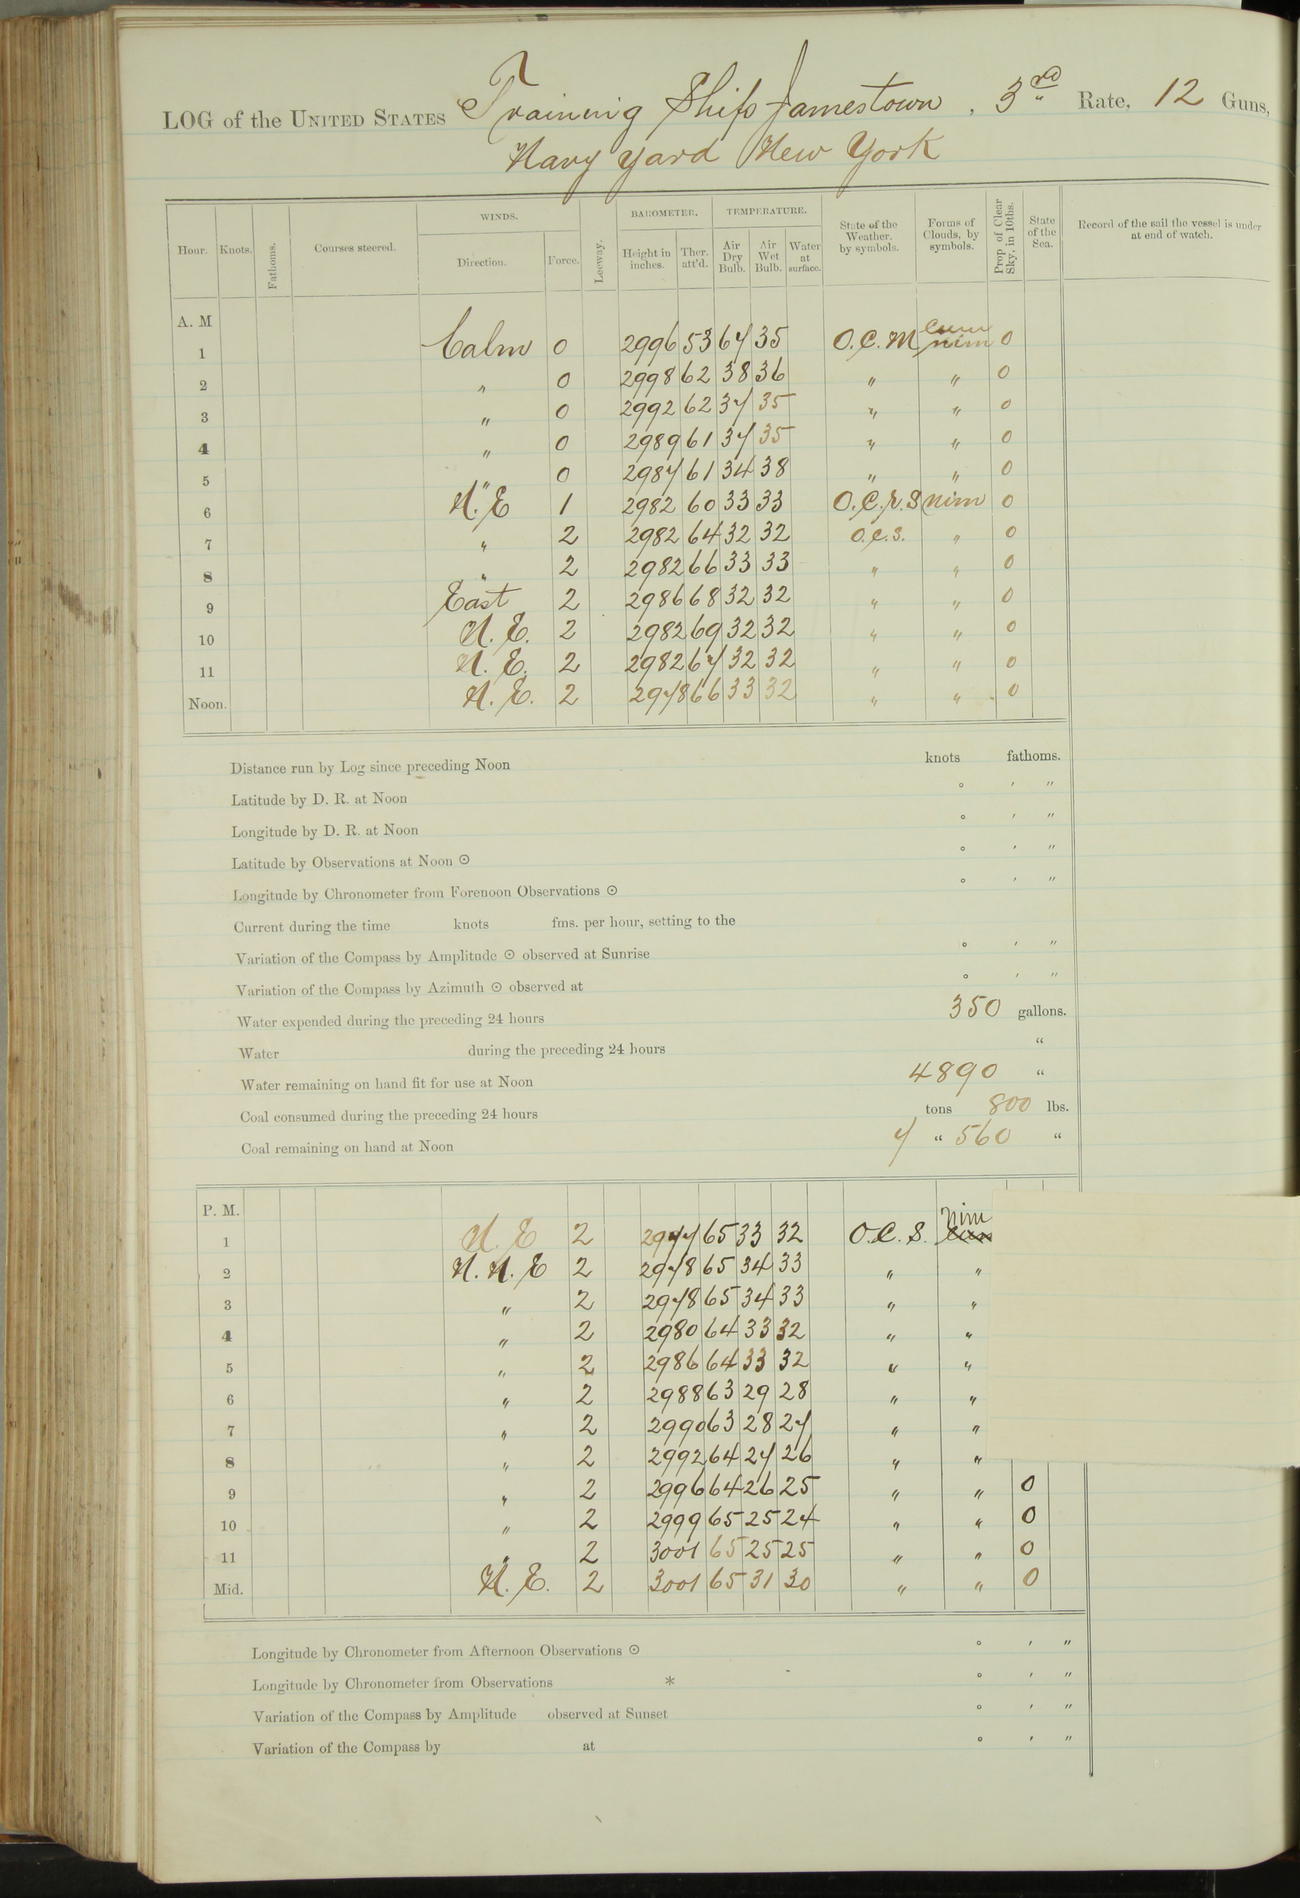 LOG of the UNITED STATES Training Ship Jamestown, 3rd Rate, 12 Guns,
Navy Yard New York
Hour. Knots. Fathoms. Courses steered. WINDS. Direction. Force. Leeway. BAROMETER. Height in inches. Ther. att'd. TEMPERATURE. Air Dry Bulb. Air Wet Bulb. Water at surface. State of the Weather, by symbols. Forms of Clouds, by symbols. Prop. of Clear Sky, in 10ths. State of the Sea. Record of the sail the vessel is under at end of watch.
A. M
1 Calm 0 2996 53 67 35 O.C.M cum nim 0
2 " 0 2998 62 38 36 " " 0
3 " 0 2992 62 37 35 " " 0
4 " 0 2989 61 37 35 " " 0
5 " 0 2987 61 34 38 " " 0
6 N.E 1 2982 60 33 33 O.C.r.S nim 0
7 " 2 2982 64 32 32 O.C.S. " 0
8 " 2 2982 66 33 33 " " 0
9 East 2 2986 68 32 32 " " 0
10 N.E. 2 2982 69 32 32 " " 0
11 N.E. 2 2982 67 32 32 " " 0
Noon. N.E. 2 2978 66 33 32 " " 0
Distance run by Log since preceding Noon knots fathoms.
Latitude by D. R. at Noon ° ′ ″
Longitude by D. R. at Noon ° ′ ″
Latitude by Observations at Noon ⊙ ° ′ ″
Longitude by Chronometer from Forenoon Observations ⊙ ° ′ ″
Current during the time knots fms. per hour, setting to the
Variation of the Compass by Amplitude ⊙ observed at Sunrise ° ′ ″
Variation of the Compass by Azimuth ⊙ observed at ° ′ ″
Water expended during the preceding 24 hours 350 gallons.
Water during the preceding 24 hours "
Water remaining on hand fit for use at Noon 4890 "
Coal consumed during the preceding 24 hours tons 800 lbs.
Coal remaining on hand at Noon 7 " 560 "
P. M.
1 N.E 2 2977 65 33 32 O.C.S. nim
2 N.N.E 2 2978 65 34 33 " "
3 " 2 2978 65 34 33 " "
4 " 2 2980 64 33 32 " "
5 " 2 2986 64 33 32 " "
6 " 2 2988 63 29 28 " "
7 " 2 2990 63 28 27 " "
8 " 2 2992 64 27 26 " "
9 " 2 2996 64 26 25 " " 0
10 " 2 2999 65 25 24 " " 0
11 " 2 3001 65 25 25 " " 0
Mid. N.E. 2 3001 65 31 30 " " 0
Longitude by Chronometer from Afternoon Observations ⊙ ° ′ ″
Longitude by Chronometer from Observations * ° ′ ″
Variation of the Compass by Amplitude observed at Sunset ° ′ ″
Variation of the Compass by at ° ′ ″